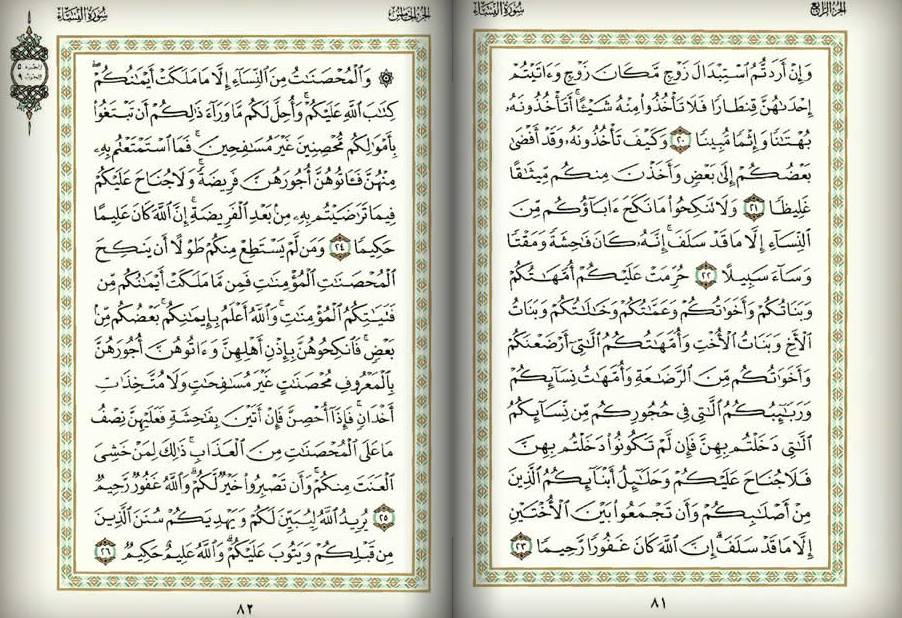 الجزء الرابع
سورة النساء
وَإِنْ أَرَدتُّمُ ٱسْتِبْدَالَ زَوْجٍ مَّكَانَ زَوْجٍ وَءَاتَيْتُمْ
إِحْدَىٰهُنَّ قِنطَارًا فَلَا تَأْخُذُوا۟ مِنْهُ شَيْـًٔا ۚ أَتَأْخُذُونَهُۥ
بُهْتَـٰنًا وَإِثْمًا مُّبِينًا ٢٠ وَكَيْفَ تَأْخُذُونَهُۥ وَقَدْ أَفْضَىٰ
بَعْضُكُمْ إِلَىٰ بَعْضٍ وَأَخَذْنَ مِنكُم مِّيثَـٰقًا
غَلِيظًا ٢١ وَلَا تَنكِحُوا۟ مَا نَكَحَ ءَابَآؤُكُم مِّنَ
ٱلنِّسَآءِ إِلَّا مَا قَدْ سَلَفَ ۚ إِنَّهُۥ كَانَ فَـٰحِشَةً وَمَقْتًا
وَسَآءَ سَبِيلًا ٢٢ حُرِّمَتْ عَلَيْكُمْ أُمَّهَـٰتُكُمْ
وَبَنَاتُكُمْ وَأَخَوَٰتُكُمْ وَعَمَّـٰتُكُمْ وَخَـٰلَـٰتُكُمْ وَبَنَاتُ
ٱلْأَخِ وَبَنَاتُ ٱلْأُخْتِ وَأُمَّهَـٰتُكُمُ ٱلَّـٰتِىٓ أَرْضَعْنَكُمْ
وَأَخَوَٰتُكُم مِّنَ ٱلرَّضَـٰعَةِ وَأُمَّهَـٰتُ نِسَآئِكُمْ
وَرَبَـٰٓئِبُكُمُ ٱلَّـٰتِى فِى حُجُورِكُم مِّن نِّسَآئِكُمُ
ٱلَّـٰتِى دَخَلْتُم بِهِنَّ فَإِن لَّمْ تَكُونُوا۟ دَخَلْتُم بِهِنَّ
فَلَا جُنَاحَ عَلَيْكُمْ وَحَلَـٰٓئِلُ أَبْنَآئِكُمُ ٱلَّذِينَ
مِنْ أَصْلَـٰبِكُمْ وَأَن تَجْمَعُوا۟ بَيْنَ ٱلْأُخْتَيْنِ
إِلَّا مَا قَدْ سَلَفَ ۗ إِنَّ ٱللَّهَ كَانَ غَفُورًا رَّحِيمًا ٢٣
٨١
الجزء الخامس
سورة النساء
۞ وَٱلْمُحْصَنَـٰتُ مِنَ ٱلنِّسَآءِ إِلَّا مَا مَلَكَتْ أَيْمَـٰنُكُمْ ۖ
كِتَـٰبَ ٱللَّهِ عَلَيْكُمْ ۚ وَأُحِلَّ لَكُم مَّا وَرَآءَ ذَٰلِكُمْ أَن تَبْتَغُوا۟
بِأَمْوَٰلِكُم مُّحْصِنِينَ غَيْرَ مُسَـٰفِحِينَ ۚ فَمَا ٱسْتَمْتَعْتُم بِهِۦ
مِنْهُنَّ فَـَٔاتُوهُنَّ أُجُورَهُنَّ فَرِيضَةً ۚ وَلَا جُنَاحَ عَلَيْكُمْ
فِيمَا تَرَٰضَيْتُم بِهِۦ مِنۢ بَعْدِ ٱلْفَرِيضَةِ ۚ إِنَّ ٱللَّهَ كَانَ عَلِيمًا
حَكِيمًا ٢٤ وَمَن لَّمْ يَسْتَطِعْ مِنكُمْ طَوْلًا أَن يَنكِحَ
ٱلْمُحْصَنَـٰتِ ٱلْمُؤْمِنَـٰتِ فَمِن مَّا مَلَكَتْ أَيْمَـٰنُكُم مِّن
فَتَيَـٰتِكُمُ ٱلْمُؤْمِنَـٰتِ ۚ وَٱللَّهُ أَعْلَمُ بِإِيمَـٰنِكُم ۚ بَعْضُكُم مِّنۢ
بَعْضٍ ۚ فَٱنكِحُوهُنَّ بِإِذْنِ أَهْلِهِنَّ وَءَاتُوهُنَّ أُجُورَهُنَّ
بِٱلْمَعْرُوفِ مُحْصَنَـٰتٍ غَيْرَ مُسَـٰفِحَـٰتٍ وَلَا مُتَّخِذَٰتِ
أَخْدَانٍ ۚ فَإِذَآ أُحْصِنَّ فَإِنْ أَتَيْنَ بِفَـٰحِشَةٍ فَعَلَيْهِنَّ نِصْفُ
مَا عَلَى ٱلْمُحْصَنَـٰتِ مِنَ ٱلْعَذَابِ ۚ ذَٰلِكَ لِمَنْ خَشِىَ
ٱلْعَنَتَ مِنكُمْ ۚ وَأَن تَصْبِرُوا۟ خَيْرٌ لَّكُمْ ۗ وَٱللَّهُ غَفُورٌ رَّحِيمٌ
٢٥ يُرِيدُ ٱللَّهُ لِيُبَيِّنَ لَكُمْ وَيَهْدِيَكُمْ سُنَنَ ٱلَّذِينَ
مِن قَبْلِكُمْ وَيَتُوبَ عَلَيْكُمْ ۗ وَٱللَّهُ عَلِيمٌ حَكِيمٌ ٢٦
٨٢
الجزء ٥
الحزب ٩